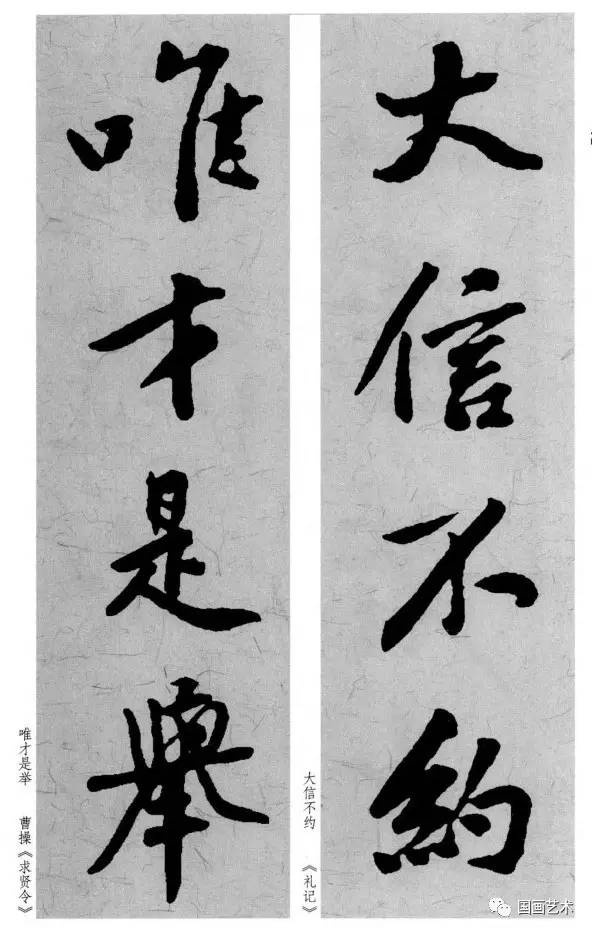 大信不約
大信不约 《礼记》
唯才是舉
唯才是举 曹操《求贤令》
国画艺术